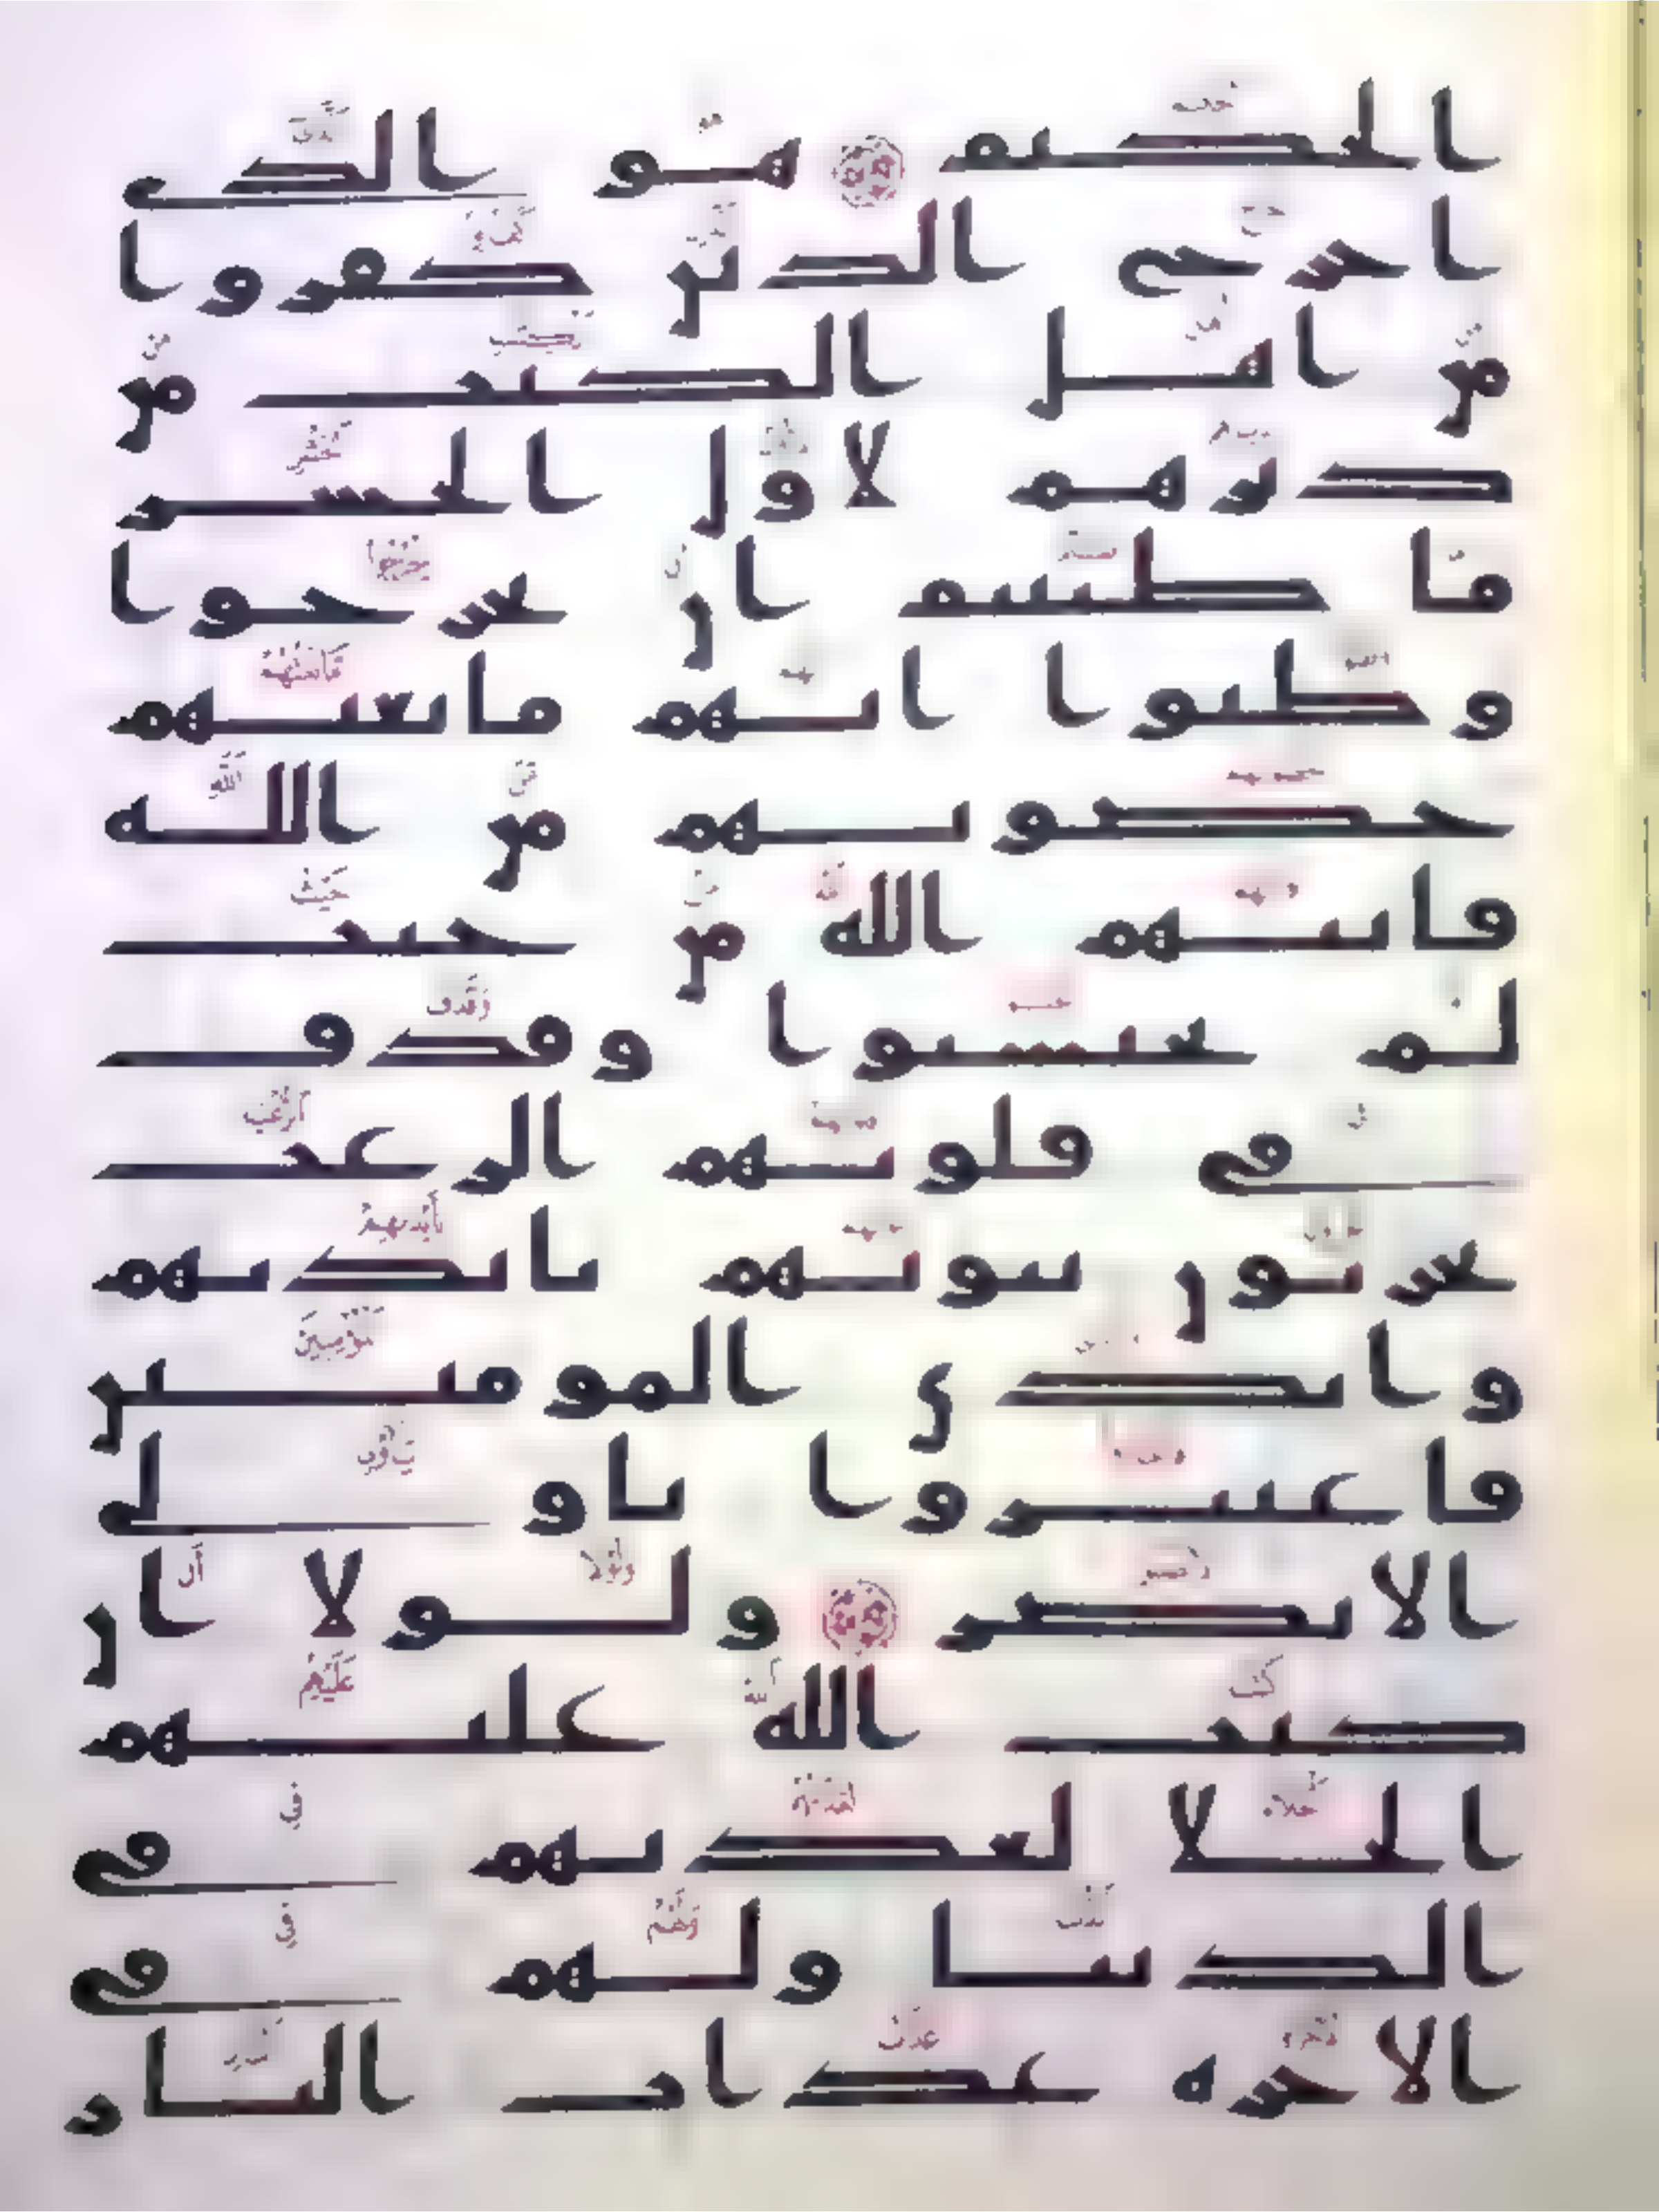 الحكيم هو الذي
اخرج الذين كفروا
من اهل الكتب من
ديرهم لاول الحشر
ما ظننتم ان يخرجوا
وظنوا انهم مانعتهم
حصونهم من الله
فاتيهم الله من حيث
لم يحتسبوا وقذف
في قلوبهم الرعب
يخربون بيوتهم بايديهم
وايدي المومنين
فاعتبروا ياولي
الابصر ولولا ان
كتب الله عليهم
الجلا لعذبهم في
الدنيا ولهم في
الاخرة عذاب النار